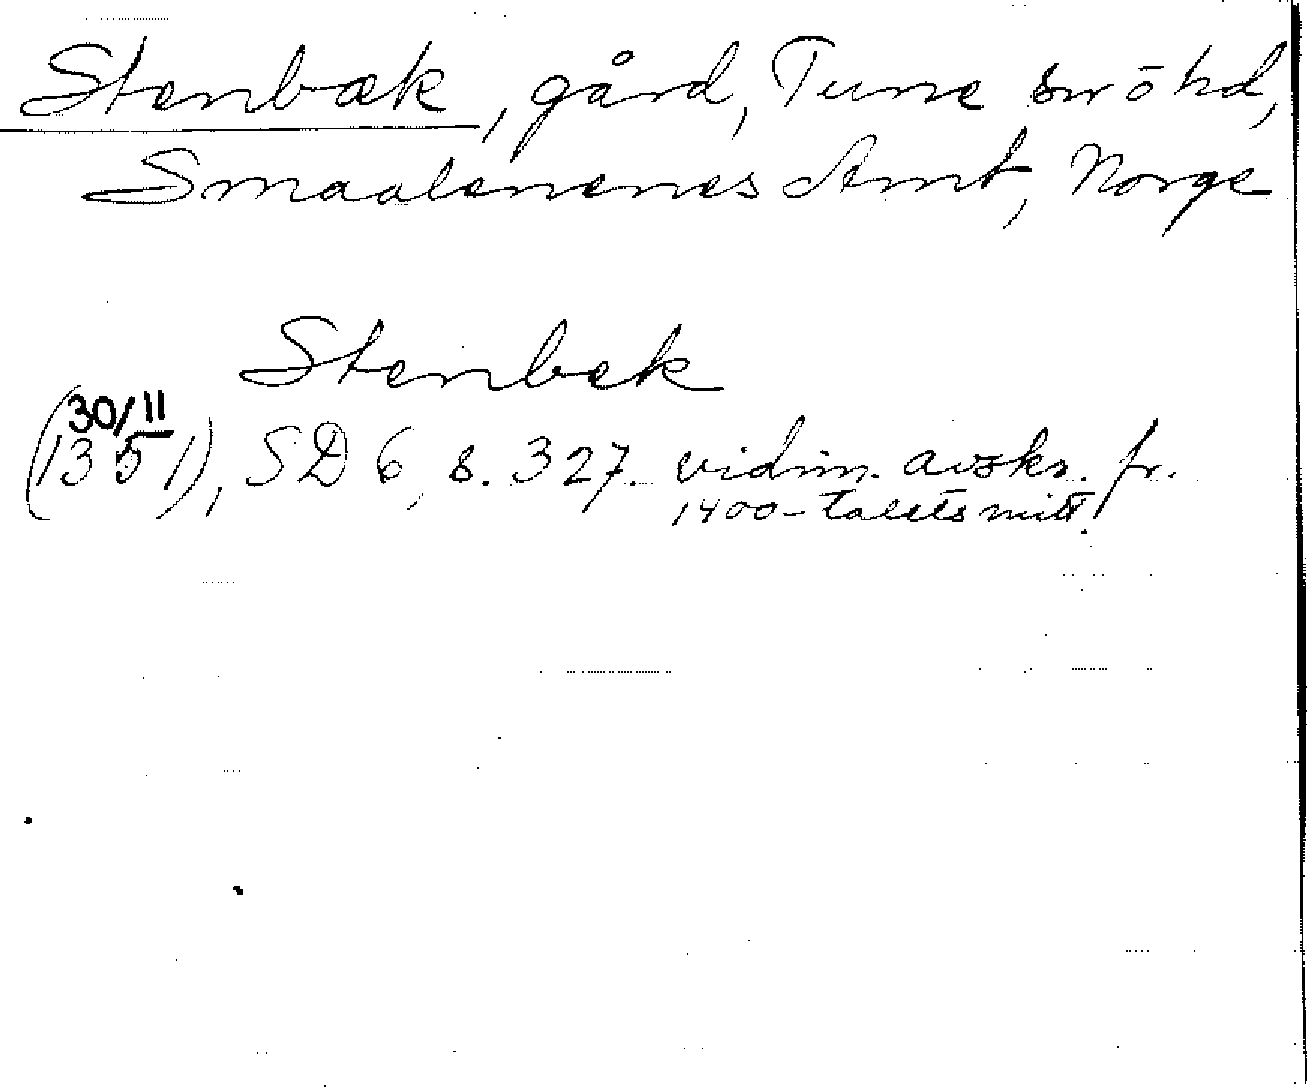 Stenbæk, gård, Tune sn o hd,
Smaalenenes Amt, Norge
Stenbek
30/11
(1351), SD 6, s. 327. vidim. avskr. fr.
1400-talets mitt.